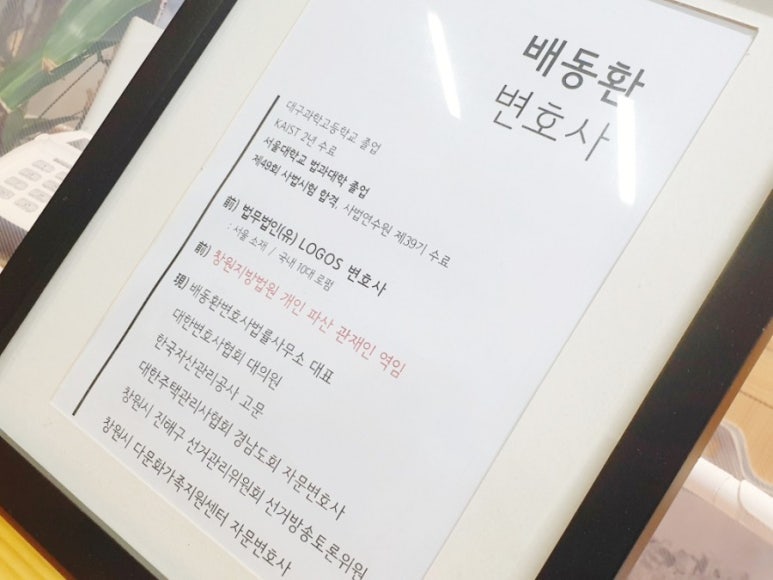 배동환
변호사
대구과학고등학교 졸업
KAIST 2년 수료
서울대학교 법과대학 졸업
제49회 사법시험 합격, 사법연수원 제39기 수료
前) 법무법인(유) LOGOS 변호사
: 서울 소재 / 국내 10대 로펌
前) 창원지방법원 개인 파산 관재인 역임
現) 배동환변호사법률사무소 대표
대한변호사협회 대의원
한국자산관리공사 고문
대한주택관리사협회 경남도회 자문변호사
창원시 진해구 선거관리위원회 선거방송토론위원
창원시 다문화가족지원센터 자문변호사